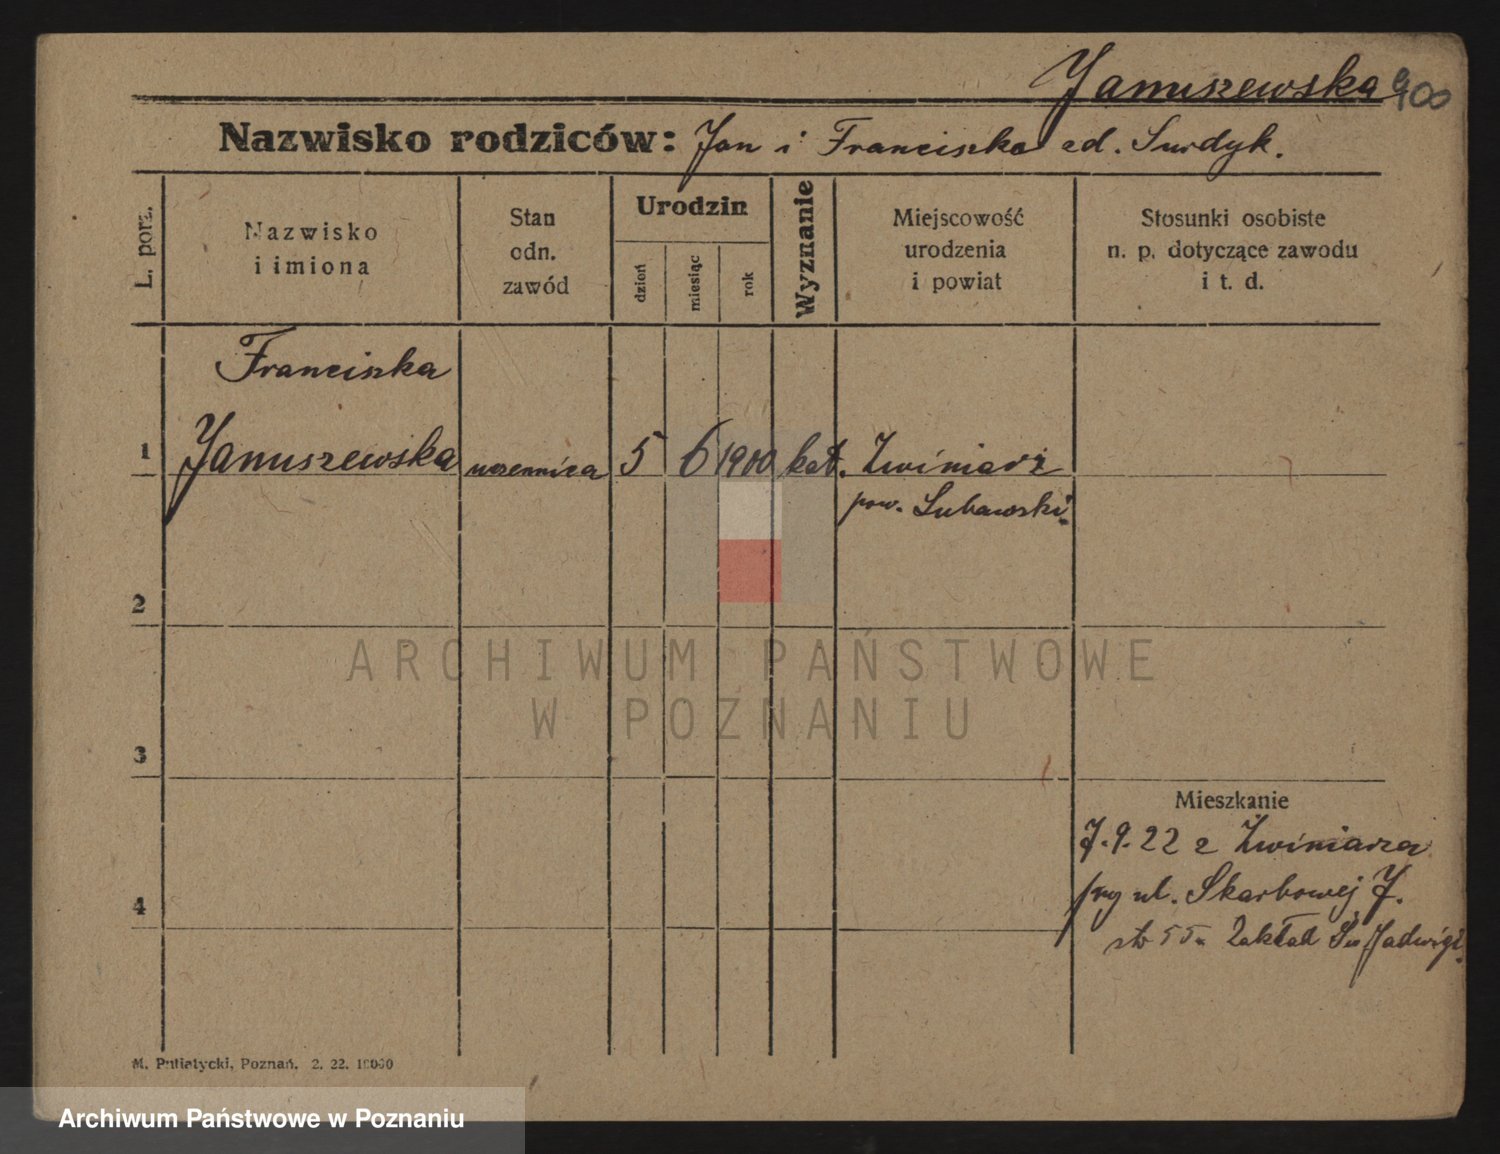 Januszewska 900
Nazwisko rodziców: Jan i Franciszka zd. Surdyk.
L. porz.
Nazwisko
i imiona
Stan
odn.
zawód
Urodzin
dzień
miesiąc
rok
Wyznanie
Miejscowość
urodzenia
i powiat
Stosunki osobiste
n. p. dotyczące zawodu
i t. d.
Franciszka
1 Januszewska uczennica 5 6 1900 kat. Zwiniarz
pow. Lubawski.
2
3
4
Mieszkanie
7.9.22 z Zwiniarza
przy ul. Skarbowej 7.
Zakład Św Jadwigi.
M. Putiatycki, Poznań. 2. 22. 10000
ARCHIWUM PAŃSTWOWE
W POZNANIU
Archiwum Państwowe w Poznaniu